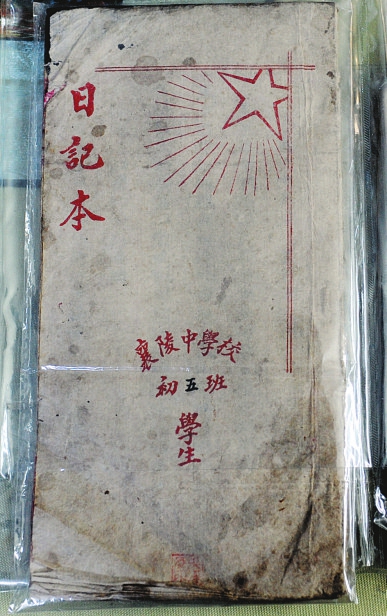 日記本
襄陵中學校
初五班
學生